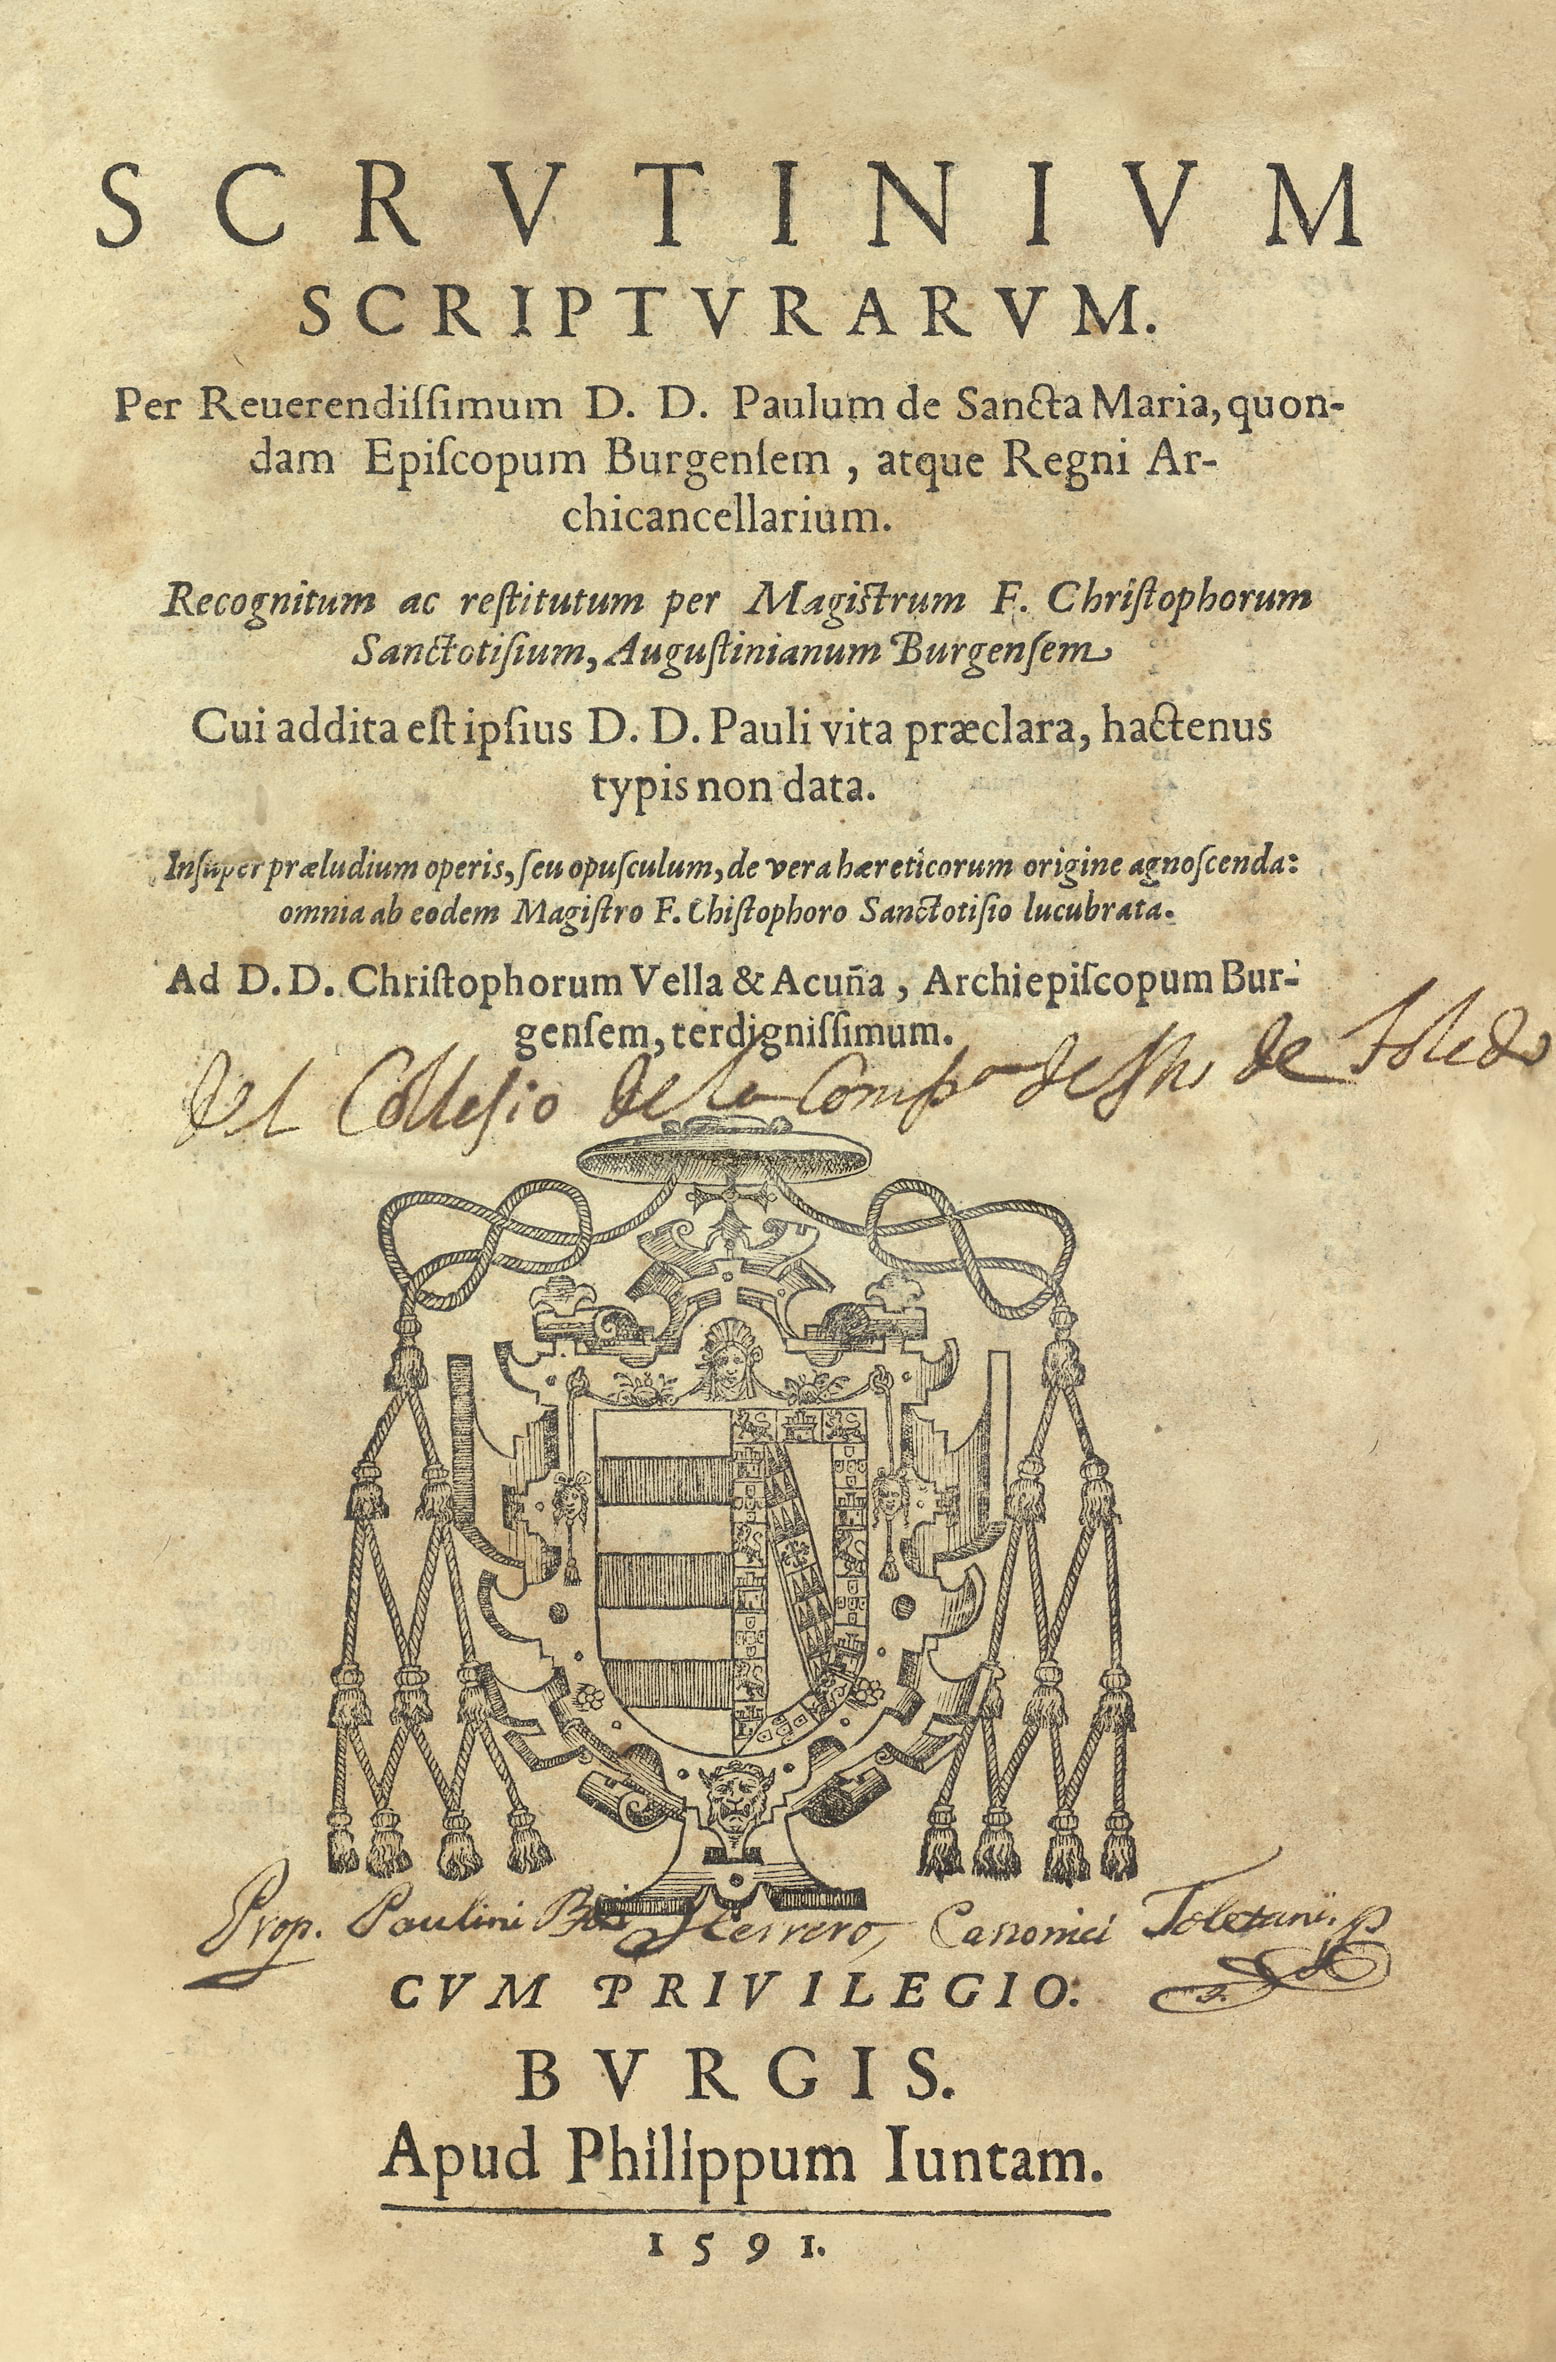 SCRVTINIVM
SCRIPTVRARVM.
Per Reuerendiſſimum D. D. Paulum de Sancta Maria, quon-
dam Epiſcopum Burgenſem, atque Regni Ar-
chicancellarium.
Recognitum ac reſtitutum per Magiſtrum F. Chriſtophorum
Sanctotiſium, Auguſtinianum Burgenſem
Cui addita eſt ipſius D. D. Pauli vita præclara, hactenus
typis non data.
Inſuper præludium operis, ſeu opuſculum, de vera hæreticorum origine agnoſcenda:
omnia ab eodem Magiſtro F. Chiſtophoro Sanctotiſio lucubrata.
Ad D. D. Chriſtophorum Vella & Acuña, Archiepiſcopum Bur-
genſem, terdigniſſimum.
Del Collesio de la Compª de Jhs de Toledo
Prop. Paulini Herrero, Canonici Toletani.
CVM PRIVILEGIO.
BVRGIS.
Apud Philippum Iuntam.
1591.